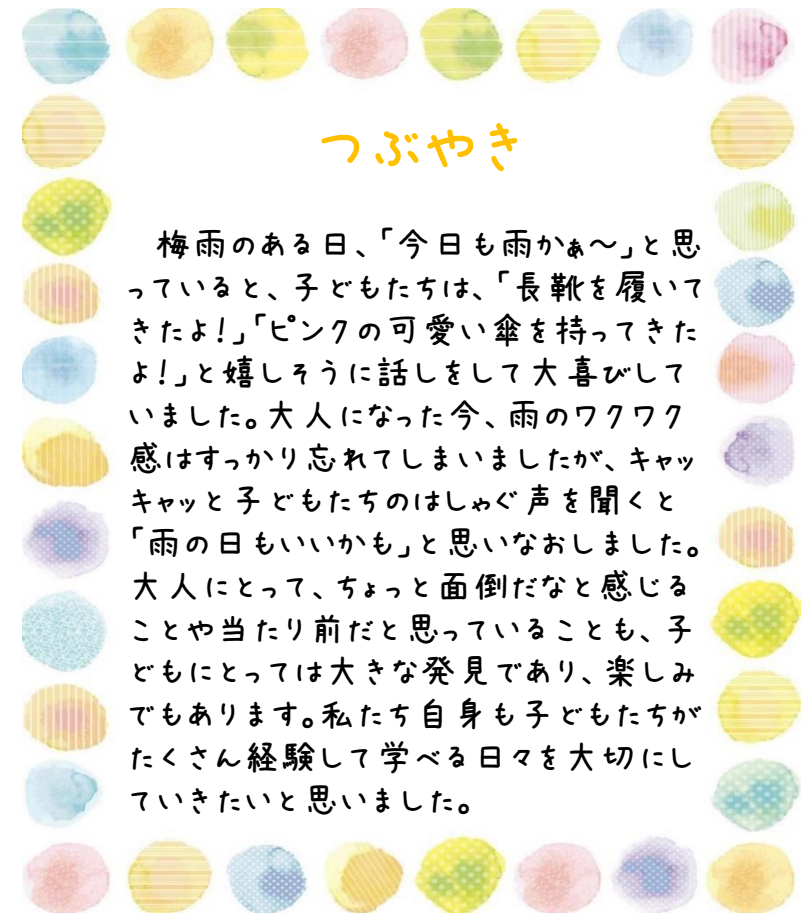 つぶやき
梅雨のある日、「今日も雨かぁ～」と思
っていると、子どもたちは、「長靴を履いて
きたよ！」「ピンクの可愛い傘を持ってきた
よ！」と嬉しそうに話しをして大喜びして
いました。大人になった今、雨のワクワク
感はすっかり忘れてしまいましたが、キャッ
キャッと子どもたちのはしゃぐ声を聞くと
「雨の日もいいかも」と思いなおしました。
大人にとって、ちょっと面倒だなと感じる
ことや当たり前だと思っていることも、子
どもにとっては大きな発見であり、楽しみ
でもあります。私たち自身も子どもたちが
たくさん経験して学べる日々を大切にし
ていきたいと思いました。